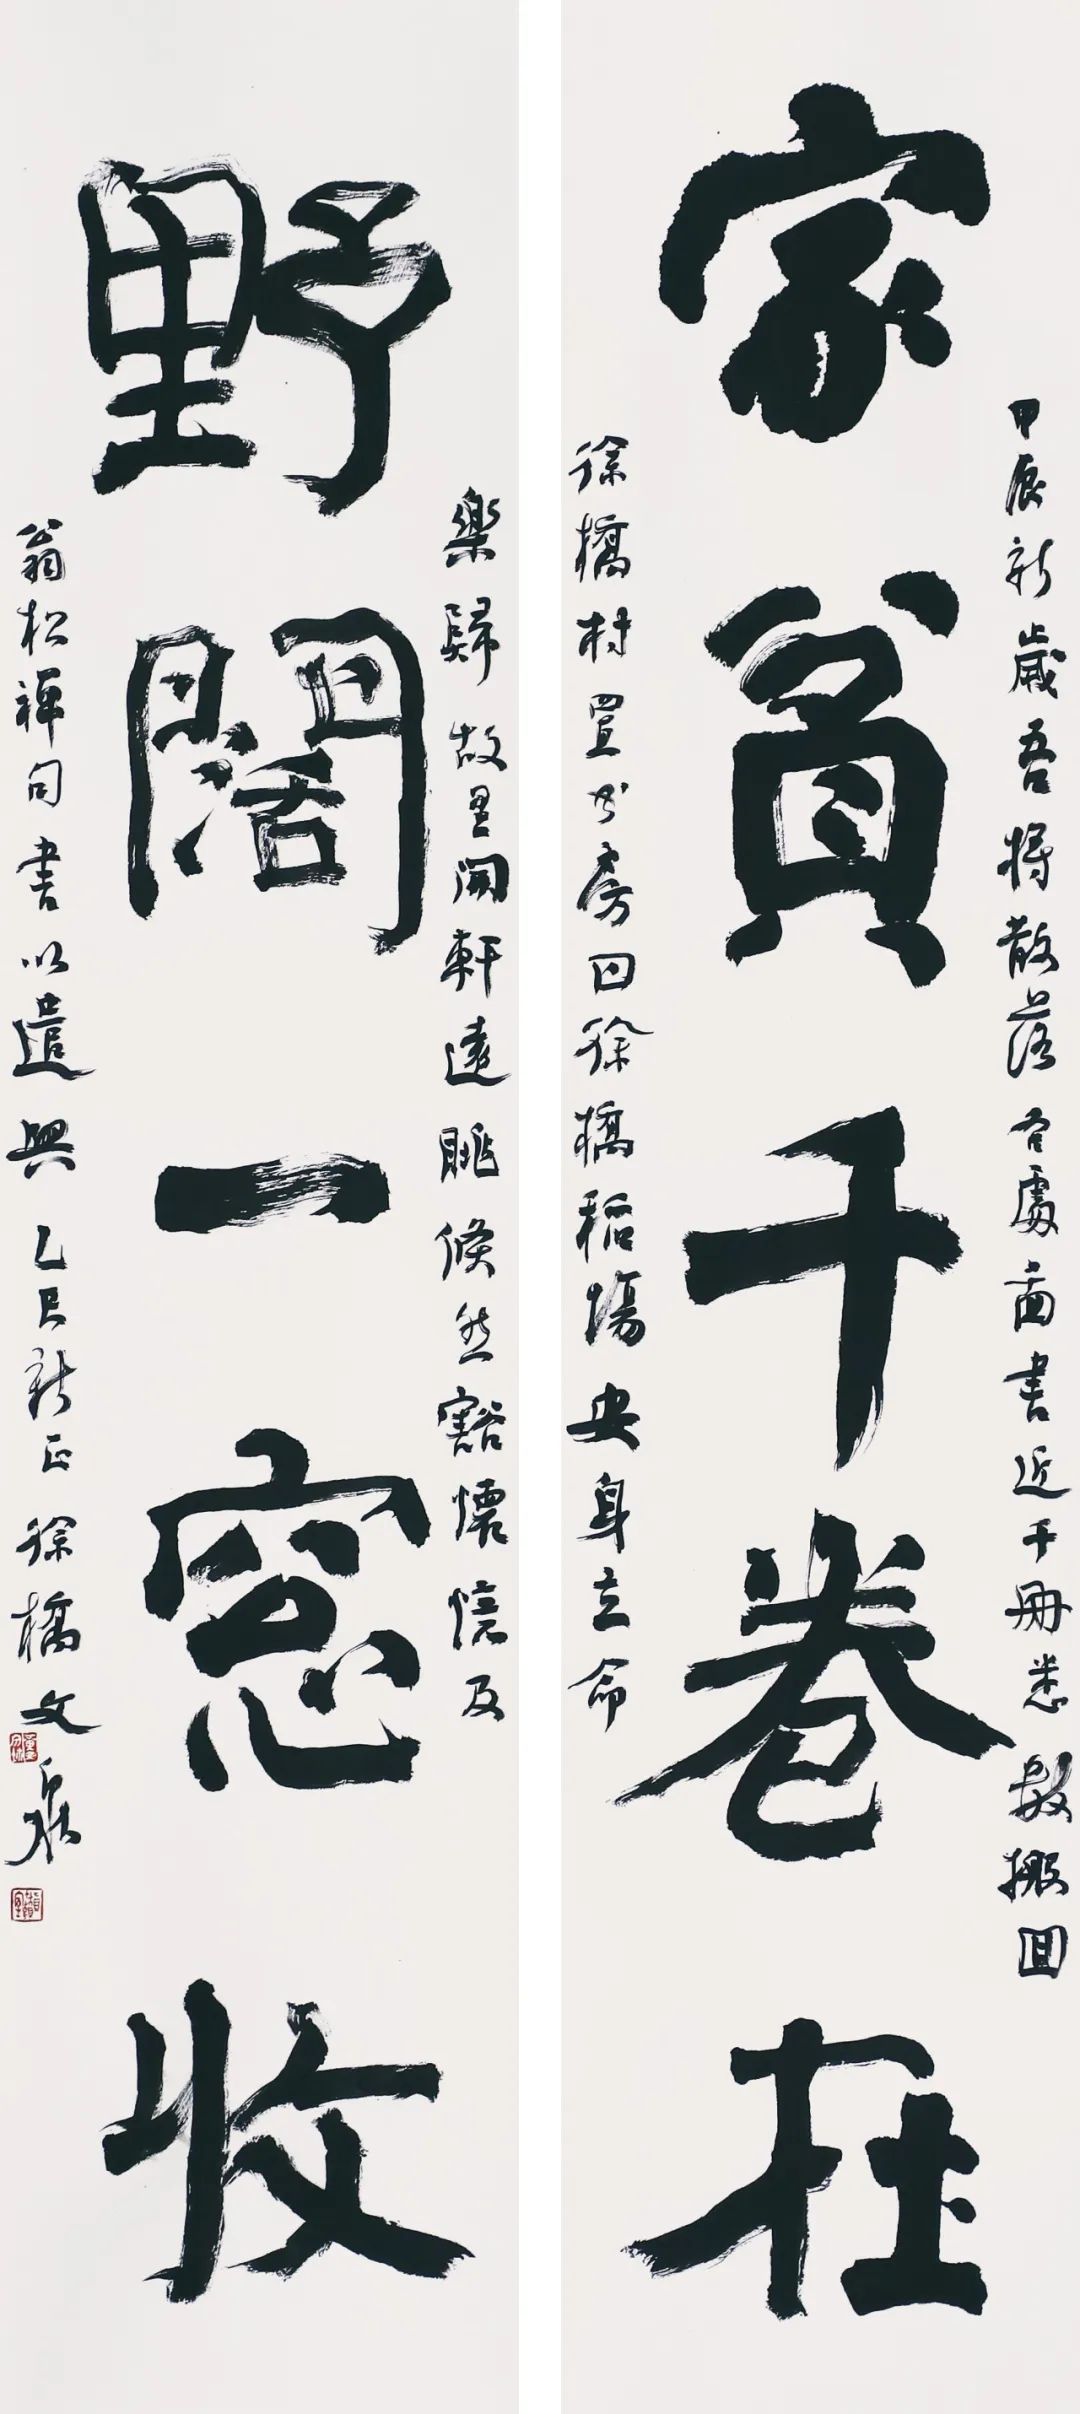 家貧千卷在
甲辰新歲吾將散落各處畫書近千冊悉數搬回
徐橋村置書房曰徐橋稻場安身立命
野闊一窓收
樂歸故里開軒遠眺倏然豁懷憶及
翁松禪句書以遣興乙巳新正徐橋文泉